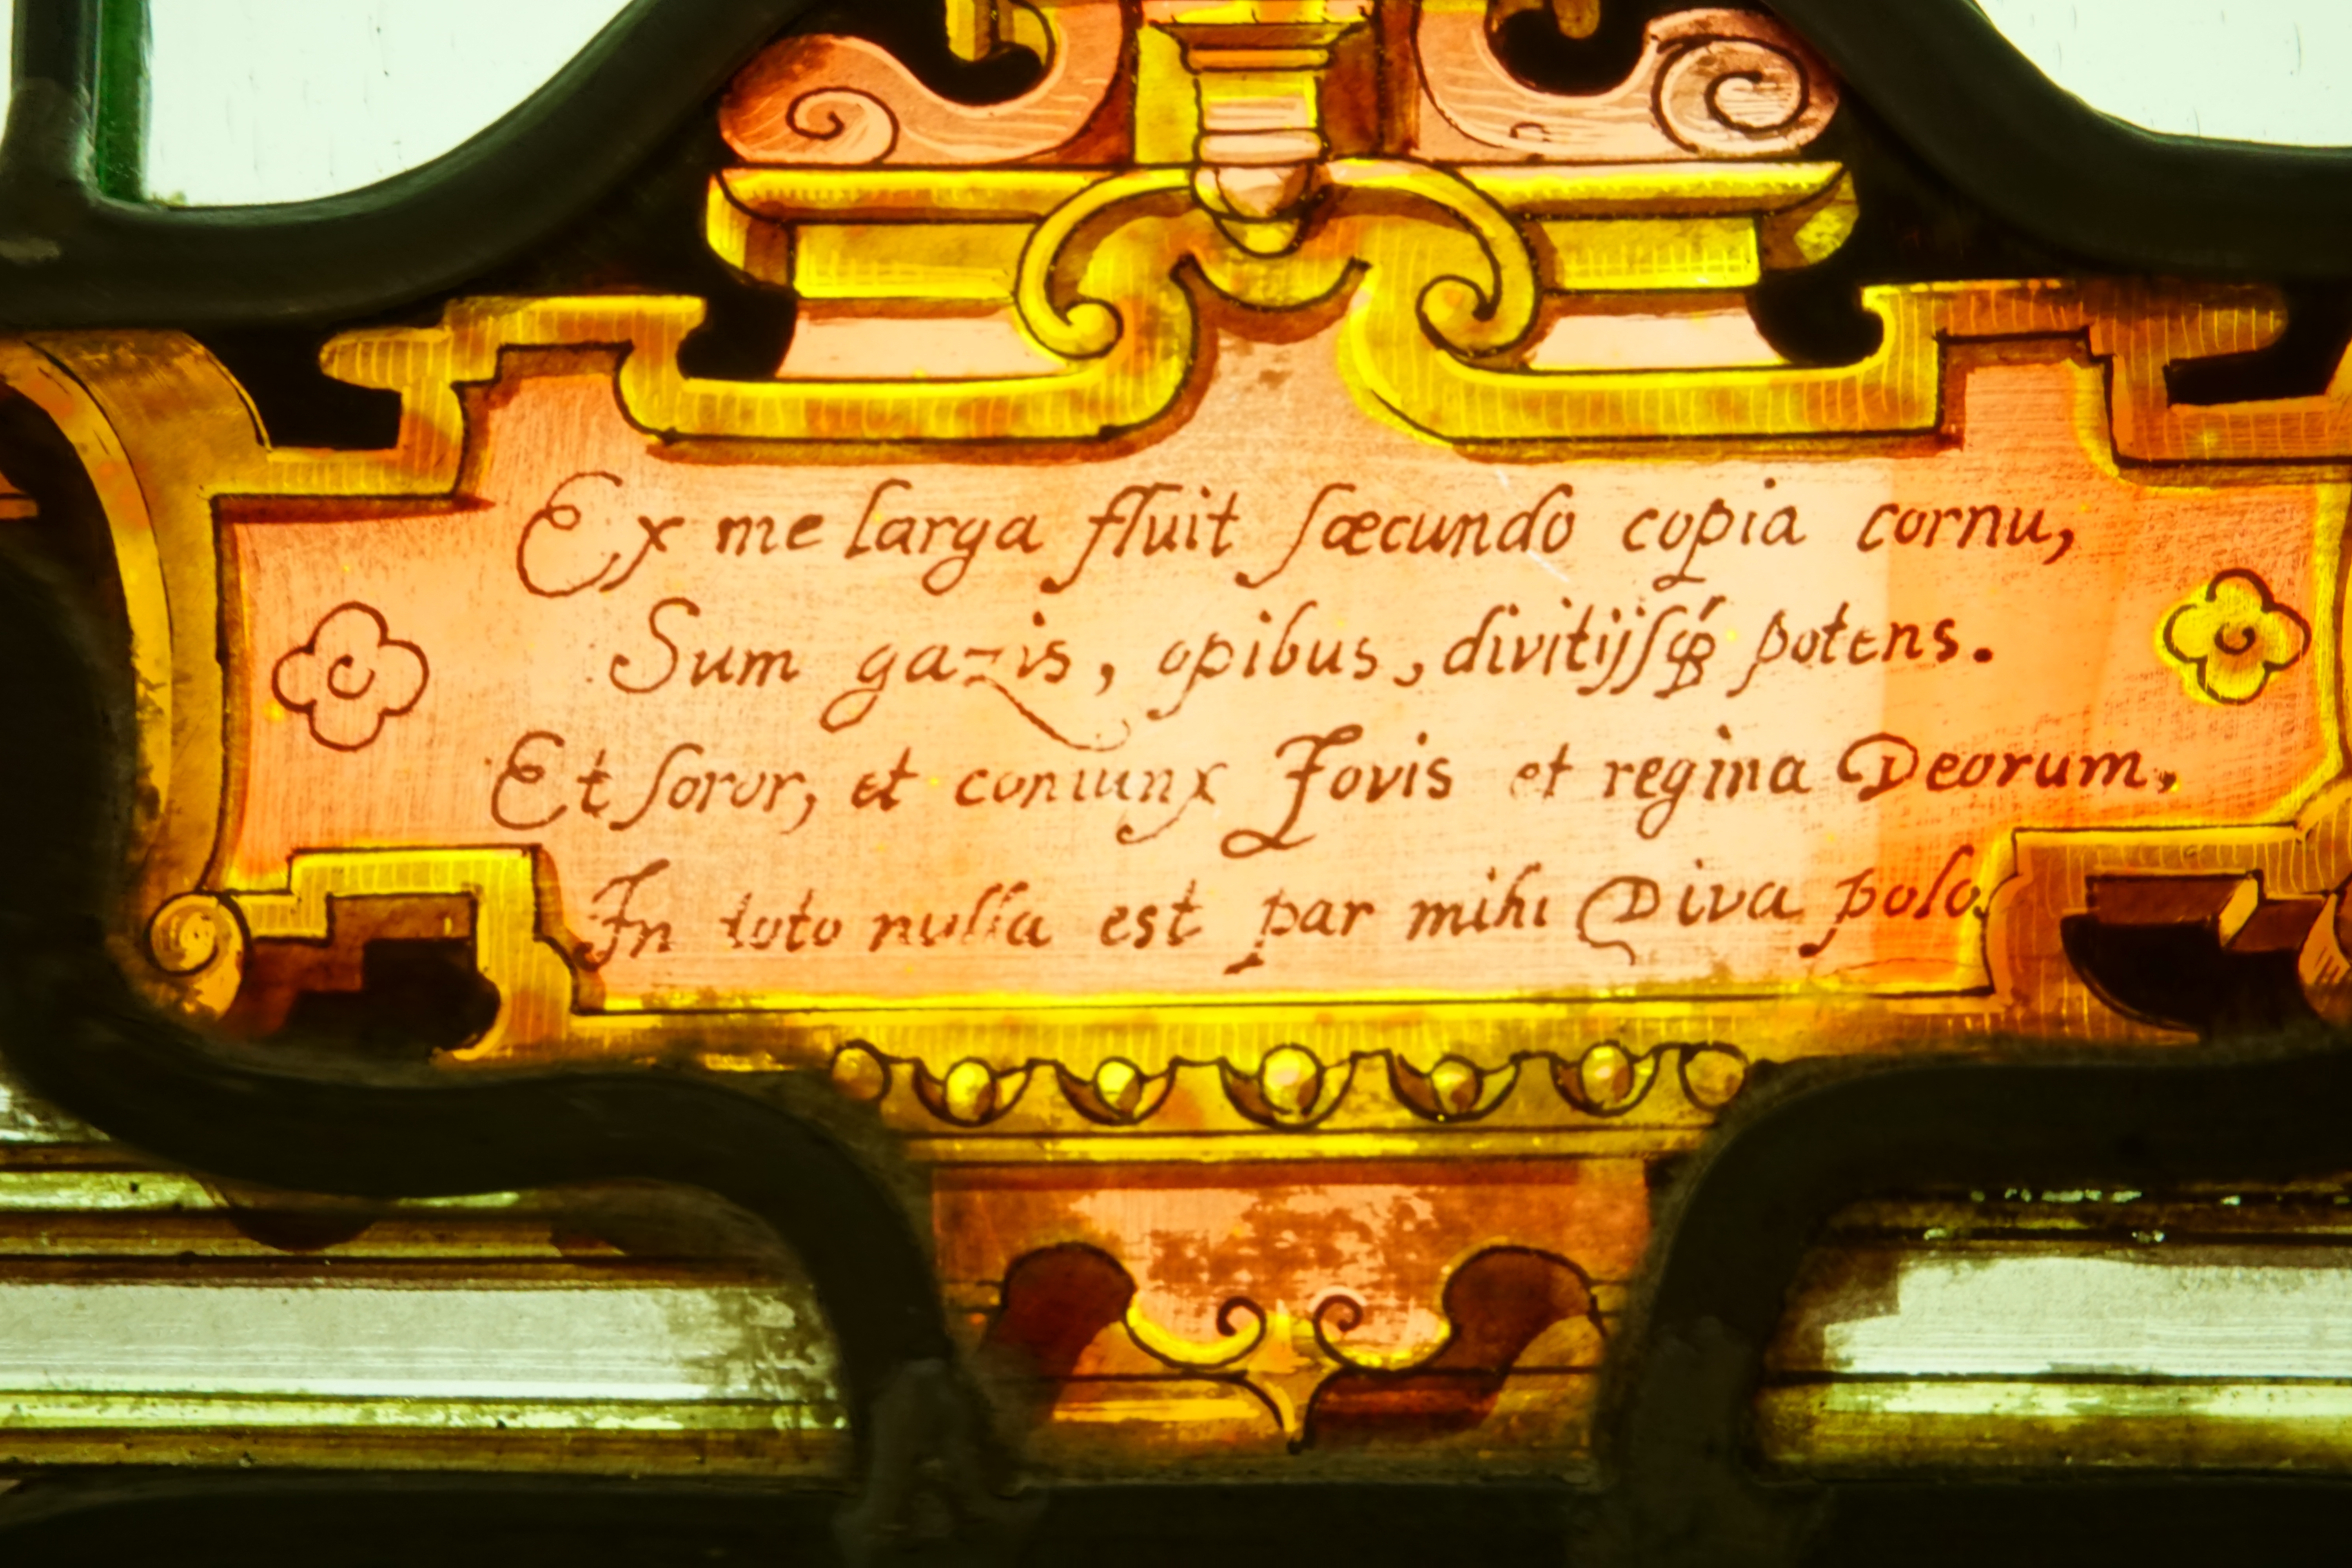 Ex me larga fluit ſæcundo copia cornu,
Sum gazis, opibus, divitijſq́ꝫ potens.
Et ſoror, et coniunx Jovis et regina Deorum,
In toto nulla est par mihi Diva polo.